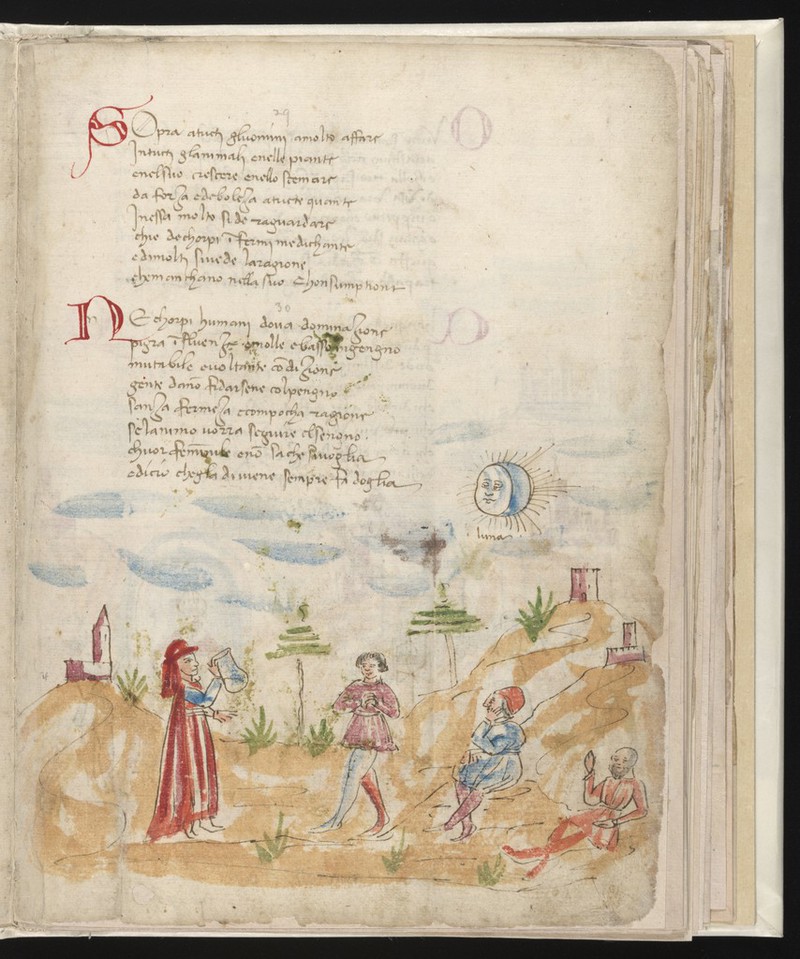 29
SOpra atucti gluomini amolto affare
Intucti glanimali enelle piante
enelsuo crescere enello scemare
da forza edeboleza atucte quante
Inessa molto side raguardare
chie dechorpi ifermi medichante
edimolti sivede laragione
chemanchano nella suo chonsumptione
30
NE chorpi humani dova dominazione
pigra ifluenza emolle ebasso ingengno
mutabile evoltante codizione
gente dano fidarsene colpengno
sanza fermeza ecompocha ragione
selanimo vorra seguire elsengno
chuor feminile eno sache sivoglia
edicio cheglia diviene sempre sa doglia
luna